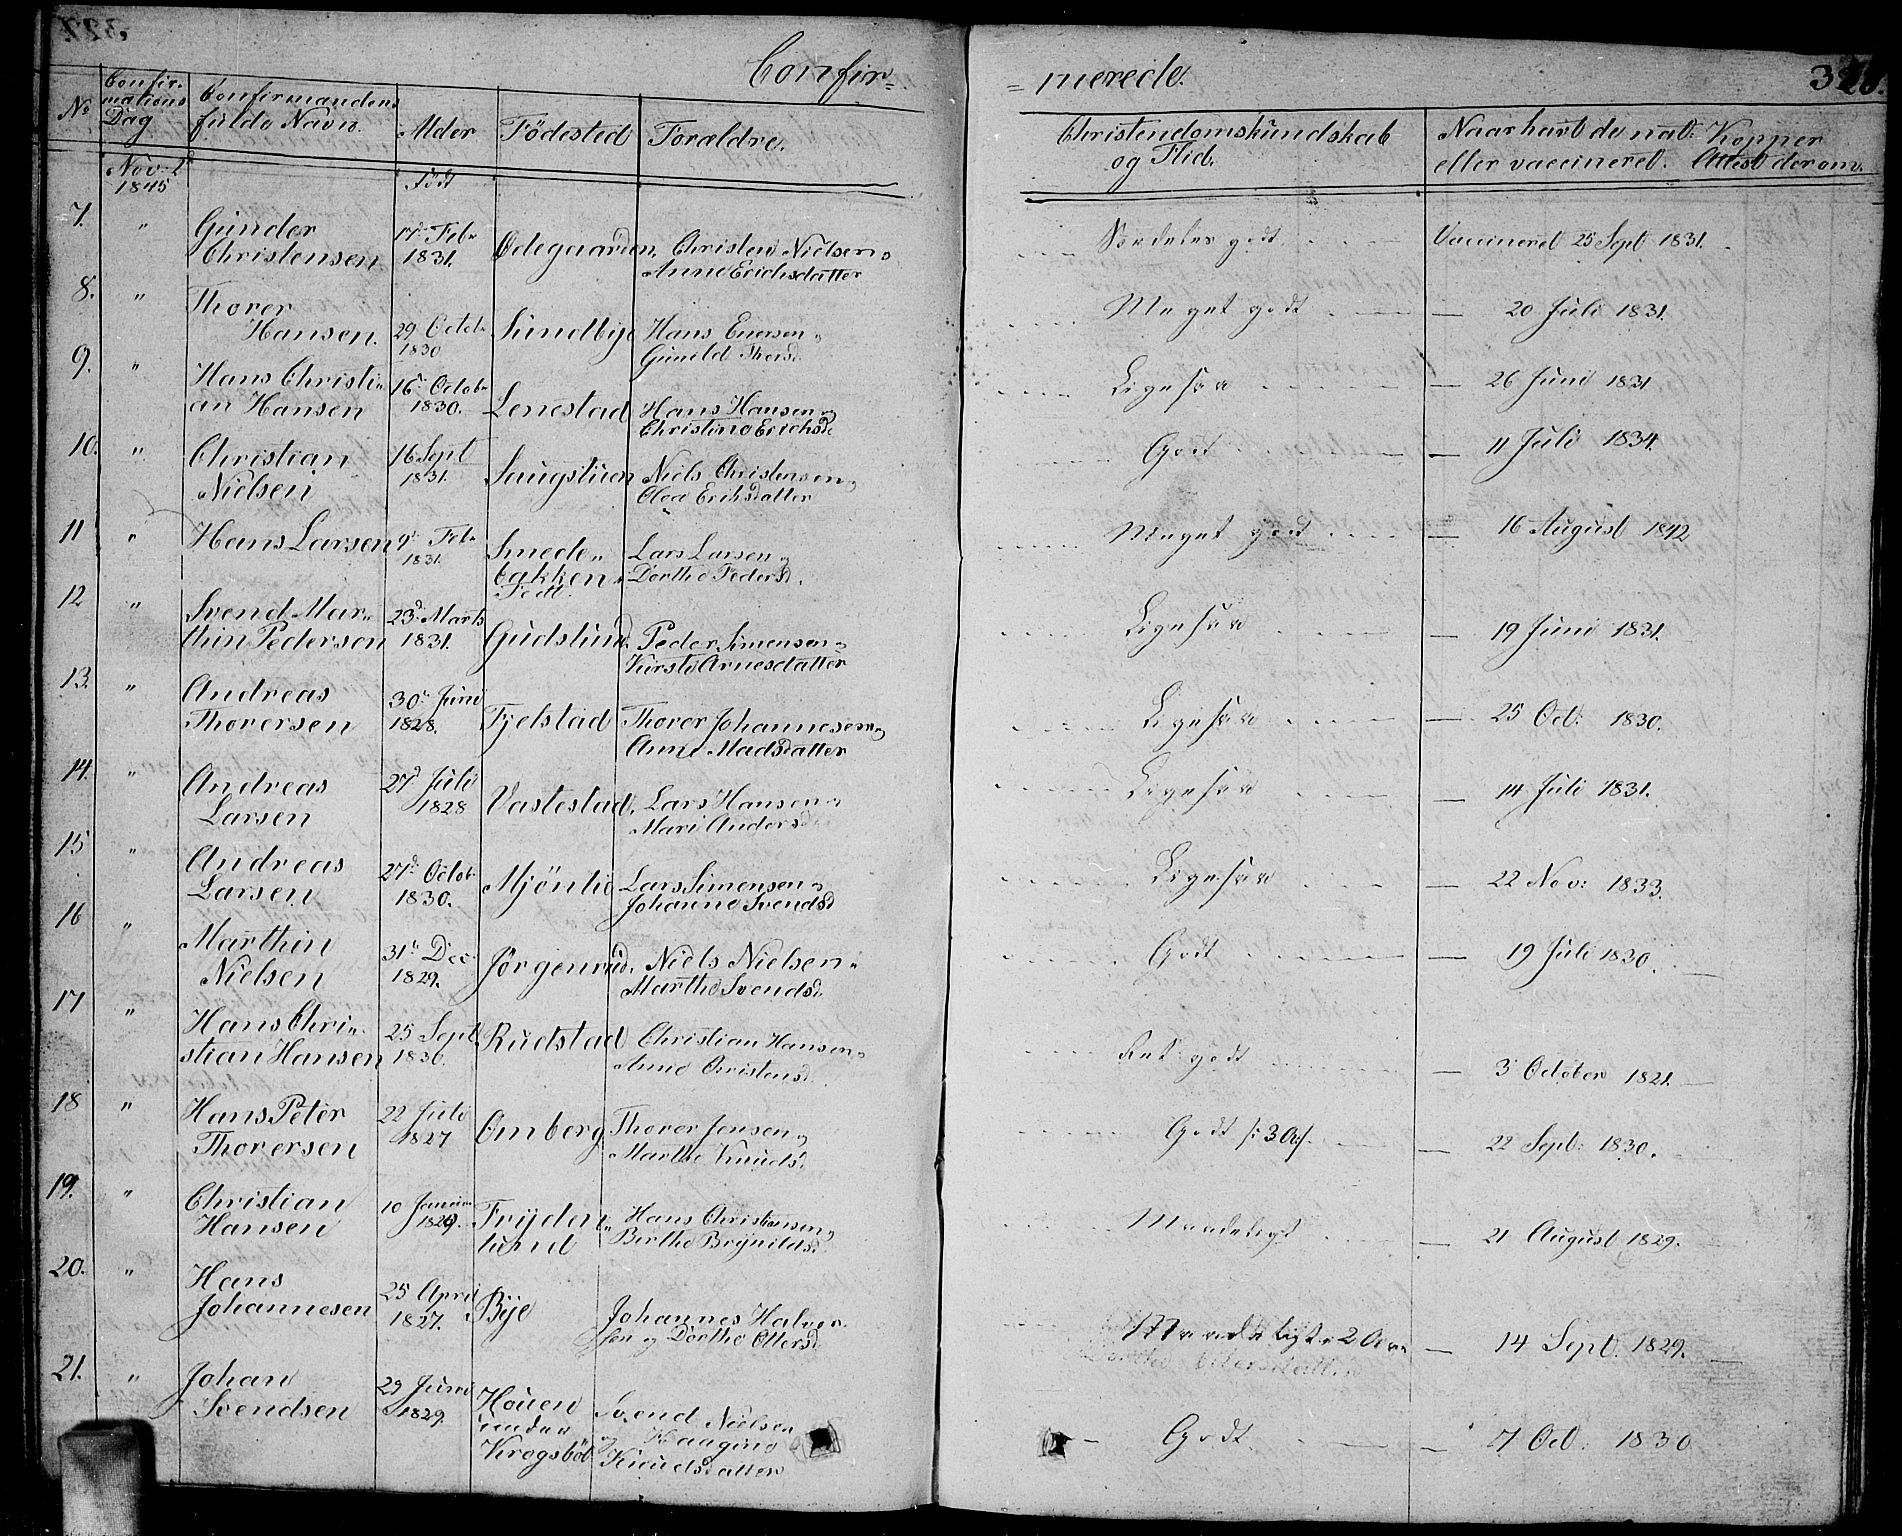 Confir=
= merede.
No
Confir-
mations
Dag
Confirmandens
fulde Navn.
Alder
Födested
Forældre.
Christendomskundskab
og Flid.
Naar havt de nat: Kopper
eller vaccineret. Attest derom.
Nov. 2
1845
Född
7. " Gunder
Christensen
17d Feb
1831.
Ödegaarden.
Christen Nielsen,
Anne Erichsdatter
Særdeles godt
Vaccineret 25 Sept 1831.
8. " Thorer
Hansen.
29 Octob
1830
Sundbye
Hans Enersen
Gunild Thorsd
Meget godt
20 Juli 1831.
9. " Hans Christi-
an Hansen
16 Octob
1830.
Lenestad
Hans Hansen og
Christine Erichsd
Ligesaa
26 Juni 1831
10. " Christian
Nielsen
16 Sept
1831.
Saugstuen
Niels Christensen
Olea Eriksdatter
Godt
11 Juli 1834.
11 " Hans Larsen
9 Feb
1831.
Smede-
bakken
Lars Larsen og
Dorthe Peders
Meget godt
16 August 1842
12 " Svend Mar-
thin Pedersen
23d Marts
1831.
Gudslund.
Peder Simensen
Kirsti Arnesdatter
Ligesaa
19 Juni 1831.
13. " Andreas
Thorersen
30 Juni
1828.
Fjelstad
Thorer Johannesen
Anne Madsdatter
Ligesaa
25 Oct: 1830.
14. " Andreas
Larsen
27d Juli
1828
Vastestad
Lars Hansen
Mari Anders
Ligesaa
14 Juli 1831.
15 " Andreas
Larsen
27d Octob
1830.
Mjöntie
Lars Simensen og
Johanne Svendsd
Ligesaa
22 Nov: 1833.
16 " Marthin
Nielsen
31 Dec
1829.
Jörgenrud.
Niels Nielsen
Marthe Svendsd.
Godt
19 Juli 1830.
17 " Hans Chri-
stian Hansen
25 Sept
Rudstad
Christian Hansen
Anne Christensd
godt
3 October 1821.
18 " Hans Peter
Thorersen
22 Juli
1827
Omberg
Thorer Jensen og
Marthe Knuds
Godt
22 Sept: 1830.
19. " Christian
Hansen
10 Januar
1829.
Frÿden
lund
Hans Christiansen
Birthe Brynildsd
Maadeligt
21 August 1829.
20. " Hans
Johannesen
25 April
1827.
Bye
Johannes Halvor
sen og Dorthe Ottersd
Maadeligt
14 Sept. 1829.
21. " Johan
Svendsen
29 Juni
1829.
Houen
under
Krogsböl
Svend Nielsen
og Haagine
Knudsdatter
Godt
7 Oct: 1830